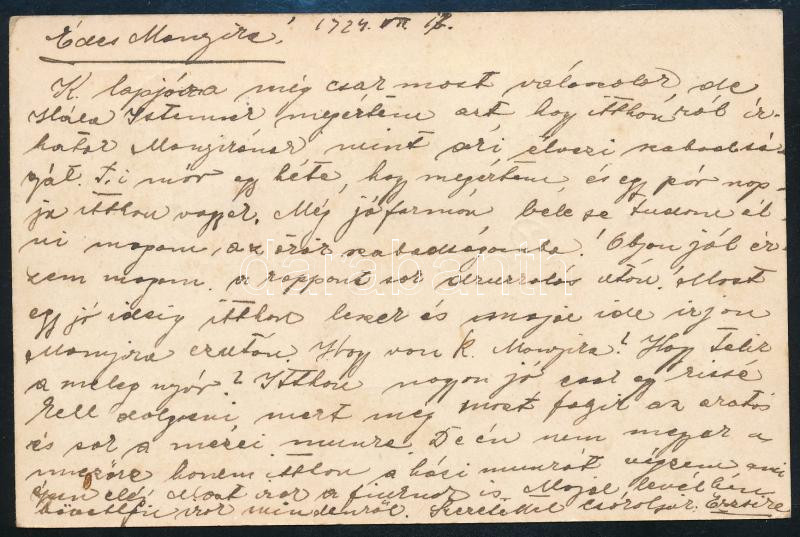 Édes Manyira! 1924. VII. 17.
K. lapjára még csak most válaszolok de
Hála Istennek megértem azt hogy itthonról ír-
hatok Manyirának mint aki élvezi szabadsá-
gát. T.i már egy hete, hogy megértem és egy pár nap-
ja itthon vagyok. Még jóformán bele se tudom él-
ni magam az örök szabadságomba! Olyan jól ér-
zem magam a sok után! Most
egy jó ideig itthon leszek és majd ide írjon
Manyira ezután. Hogy van k. Manyira? Hogy telik
a meleg nyár? Itthon nagyon jó csak egy kissé
kell dolgozni mert meg most folyik az aratás
és sok a mezei munka. De én nem megyek a
mezőre hanem itthon a házi munkát végzem ami
is. Majd levélben
bővebben írok mindenről. Szeretettel csókolja: Erzsike
darabanth